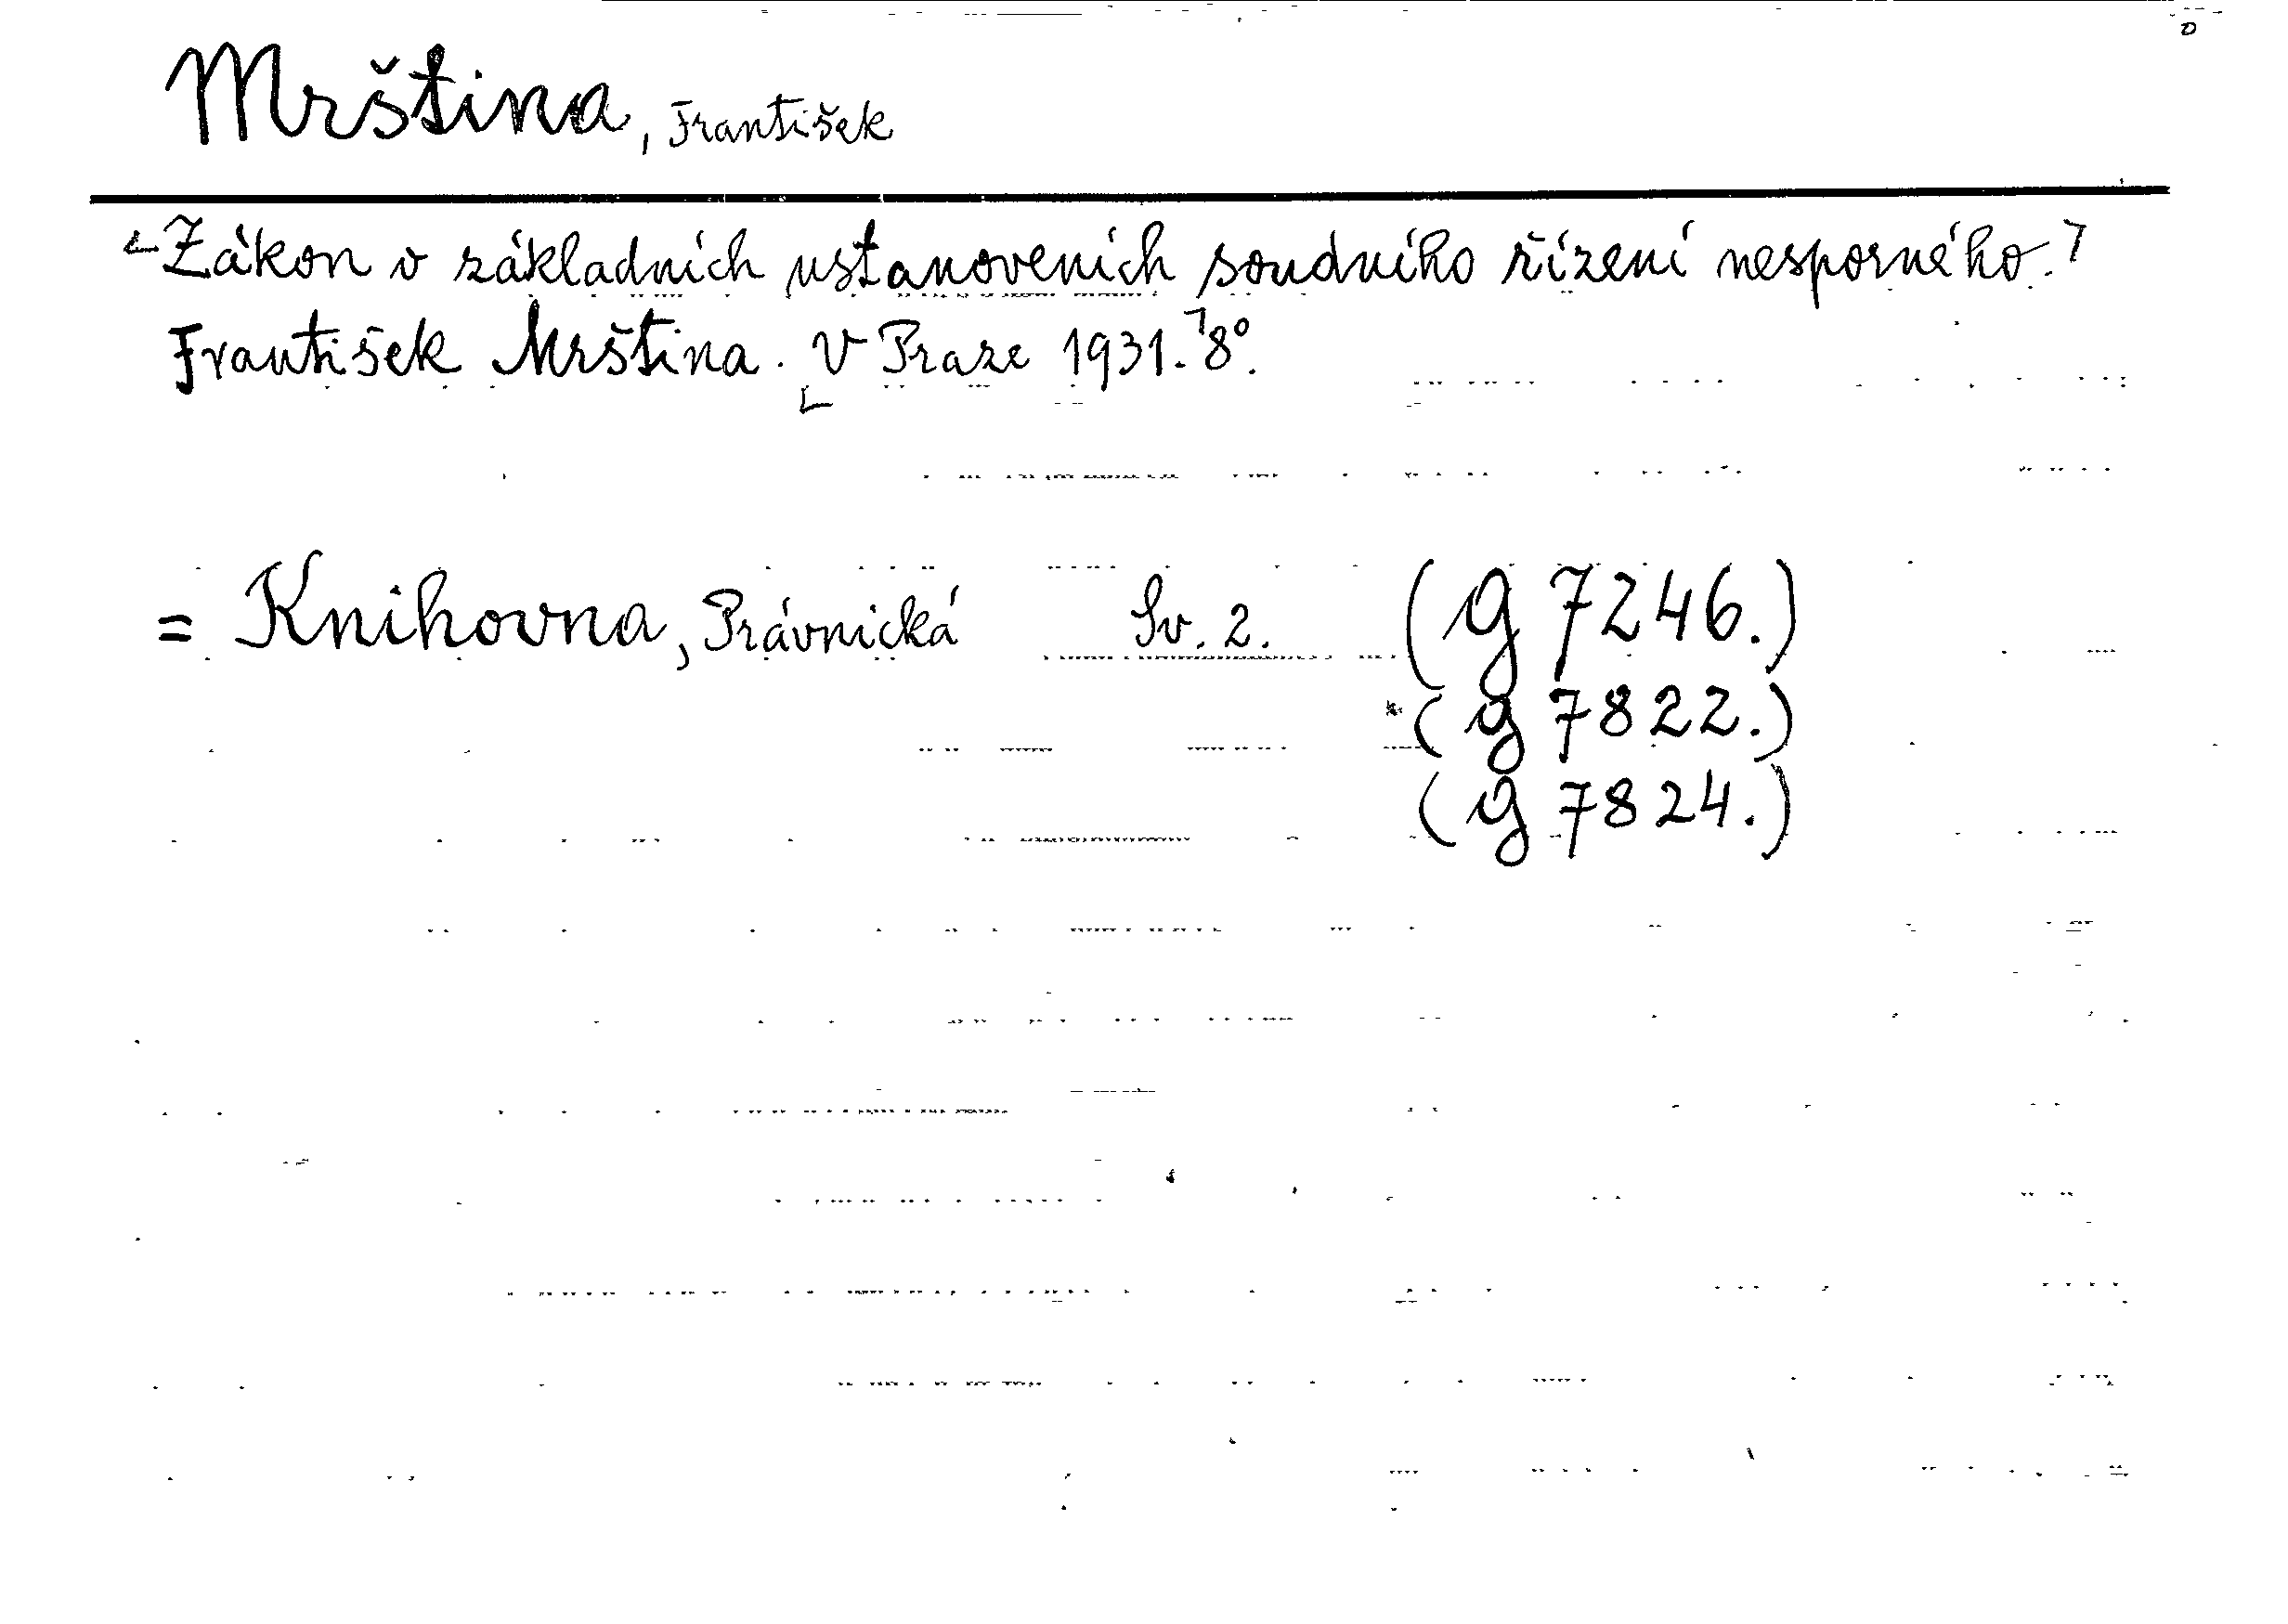 Mrština, František
⌞Zákon o základních ustanoveních soudního řízení nesporného.⌝
František Mrština. ⌞V Praze 1931.⌝ 8°.
= Knihovna, Právnická Sv. 2. (g 7246.)
*(g 7822.)
(g 7824.)